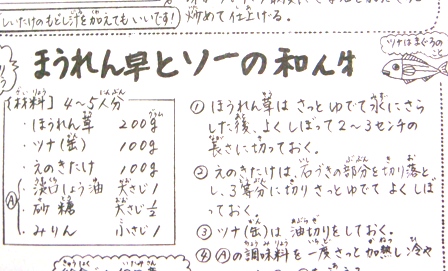 しいたけのもどし汁を加えてもいいです!
炒めて仕上げる。
ほうれん草とツナの和え物
ツナはまぐろの
[材料] 4〜5人分
・ほうれん草 200g
・ツナ(缶) 100g
・えのきたけ 100g
Ⓐ
・淡口しょう油 大さじ1
・砂糖 大さじ1/2
・みりん 小さじ1
① ほうれん草は さっと ゆでて 水にさら
した後、よくしぼって 2〜3センチの
長さに切っておく。
② えのきたけは、石づきの部分を切り落と
し、3等分に切り さっとゆでて よくしぼ
っておく。
③ ツナ(缶)は 油切りをしておく。
④ Ⓐの調味料を一度さっと加熱し 冷や